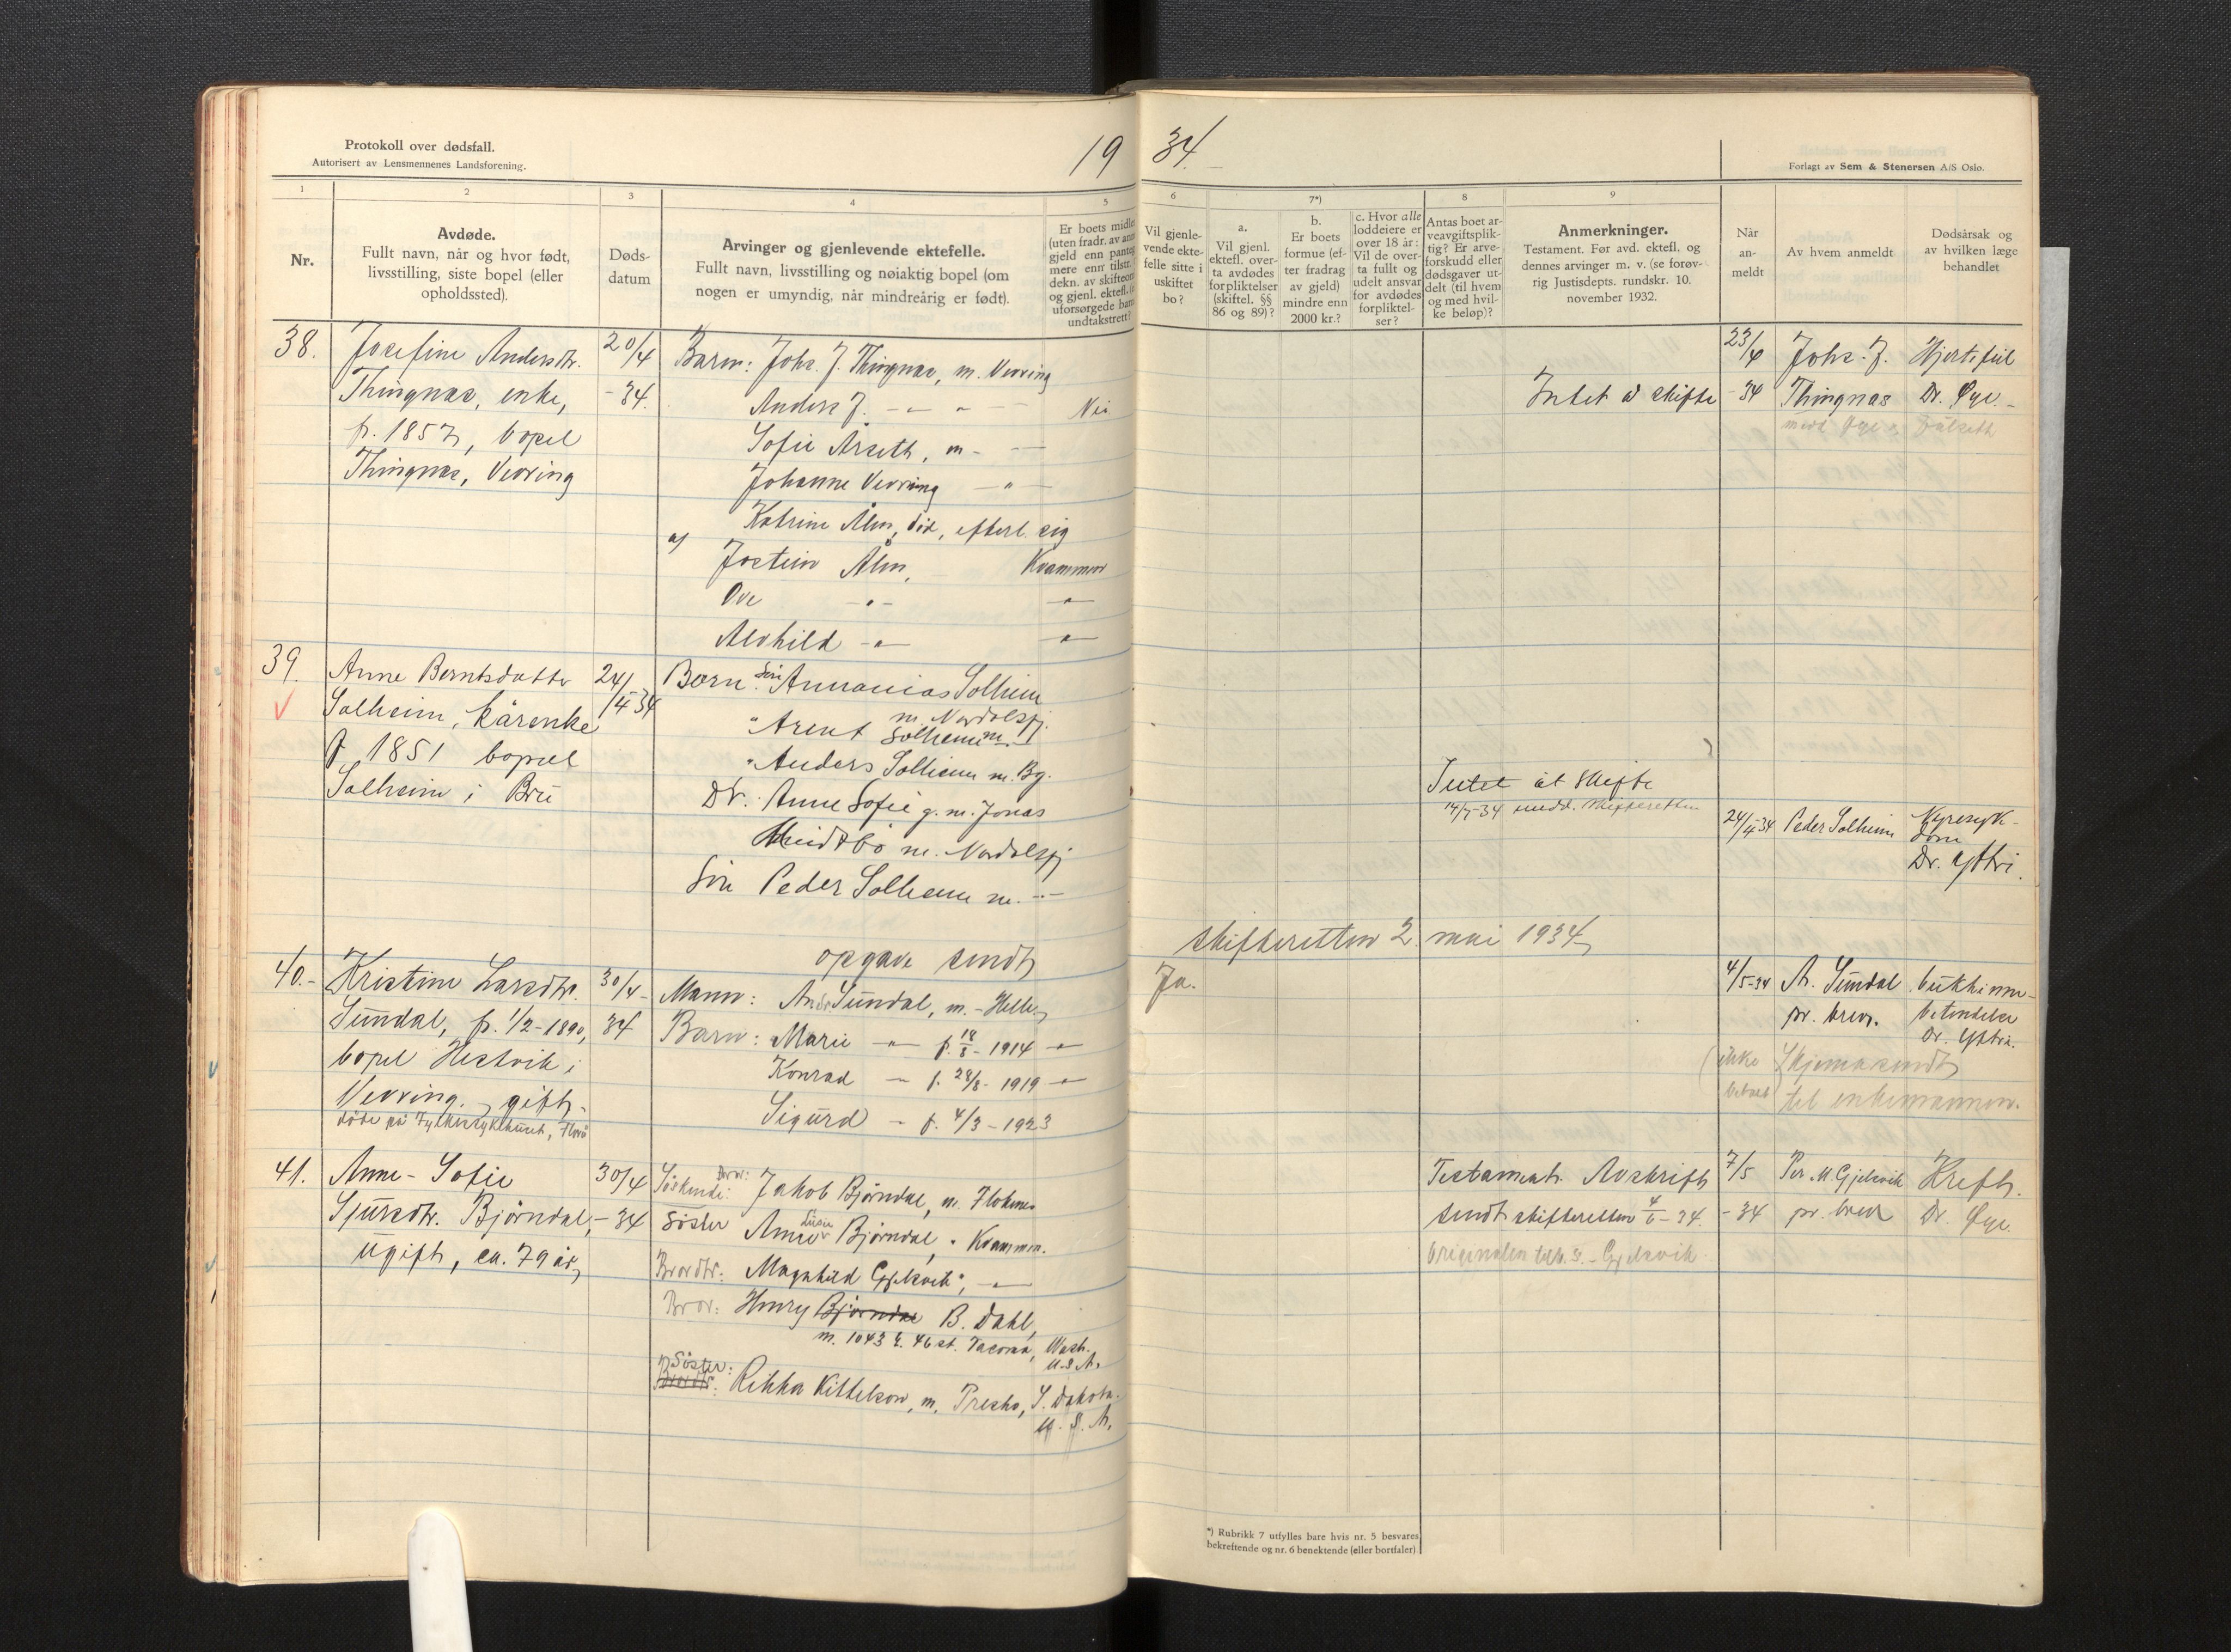 Protokoll over dødsfall.
Autorisert av Lensmennenes Landsforening.
19 34.
Forlagt av Sem & Stenersen A/S Oslo.
1 2 3 4 5 6 7*) 8 9
Nr.
Avdøde.
Fullt navn, når og hvor født,
livsstilling, siste bopel (eller
opholdssted).
Døds-
datum
Arvinger og gjenlevende ektefelle.
Fullt navn, livsstilling og nøiaktig bopel (om
nogen er umyndig, når mindreårig er født).
Er boets midle
(uten fradr. av ann
gjeld enn pante
mere enn tilstr.
dekn. av skifteom
og gjenl. ektef.
uforsørgede barn
undtaksrett?
Vil gjenle-
vende ekte-
felle sitte i
uskiftet
bo?
a.
Vil gjenl.
ektefl. over-
ta avdødes
forpliktelser
(skiftel. §§
86 og 89)?
b.
Er boets
formue (ef-
ter fradrag
av gjeld)
mindre enn
2000 kr.?
c. Hvor alle
loddeiere er
over 18 år:
Vil de over-
ta fullt og
udelt ansvar
for avdødes
forpliktel-
ser?
Antas boet ar-
veavgiftsplik-
tig? Er arve-
forskudd eller
dødsgaver ut-
delt (til hvem
og med hvil-
ke beløp)?
Anmerkninger.
Testament. Før avd. ektefl. og
dennes arvinger m. v. (se forøv-
rig Justisdepts. rundskr. 10.
november 1932.
Når
an-
meldt
Av hvem anmeldt
Dødsårsak og
av hvilken læge
behandlet
38.
Josefine Andersdtr.
Thingnæs, enke,
f. 1857, bopel
Thingnæs, Vevring
20/4
-34.
Barn: Johs. J. Thingnæs, m. Vevring
Anders J. - " - " - Nei
Sofie Årseth, m -
Johanne Vevring - " -
Katrine Alm, död, efterl. sig
a/ Jostein Alm, Kvammen
Ove - " - - " -
Alvhild - " - - " -
Intet å skifte
23/4
-34
Johs. J.
Thingnæs
Hjertefeil
Dr. Øye.
39.
Anne Berntsdatter
Solheim, kårenke
f. 1851 bopæl
Solheim i Bru
24/
/4-34
Børn: Søn Annanias Solheim
m. Nordalsfj.
" Arent Solheim m. -
" Anders Solheim m. Bg.
Dtr.: Anne Sofie g. m. Jonas
Midtbö m. Nordalsfj
Sön Peder Solheim m. - " -
Intet at skifte
14/7-34 medd. skifteretten
24/4-34
Peder Solheim
Nyresyk-
dom
Dr. Yttri.
opgave sendt skifteretten 2. mai 1934
40.-
Kristine Larsdtr.
Sundal, f. 1/2-1890,
bopel Hestvik i
Vevring. gift.
döde på Fylkessykehuset, Florö
30/4-
34
Mann: And. Sundal, m. - Helle
Barn: Marie - " - f. 18/8 - 1914 - " -
Konrad - " - f. 28/8 - 1919 - " -
Sigurd - " - f. 4/3 - 1923
Ja.
4/5-34
A. Sundal
pr. brev.
bukhinne-
betendelse
Dr. Yttri.
(ikke
betalt)
Skjema sendt
til enkemannen.
41.
Anne-Sofie
Sjursdtr. Björndal,
ugift, ca. 79 år,
30/4
-34
Söskende: Bror: Jakob Björndal, m. Flokenes
Söster Anne Björndal, " Kvammen.
Brordtr: Magnhild Gjelsvik, - " -
Bror: Henry Björndal B. Dahl,
m. 1043 E. 46 st. Tacoma, Wash.
U.S.A.
Söster:
Brordtr: Rikka Kittelson, m. Presho, S. Dakota.
U. S. A.
Testament. Avskrift
sendt skifteretten 4/6-34.
Originalen tilb. s. - Gjelsvik
7/5
-34
Per M. Gjelsvik
pr. brev
Kreft.
Dr. Øye.
*) Rubrikk 7 utfylles bare hvis nr. 5 besvares
bekreftende og nr. 6 benektende (eller bortfaller)